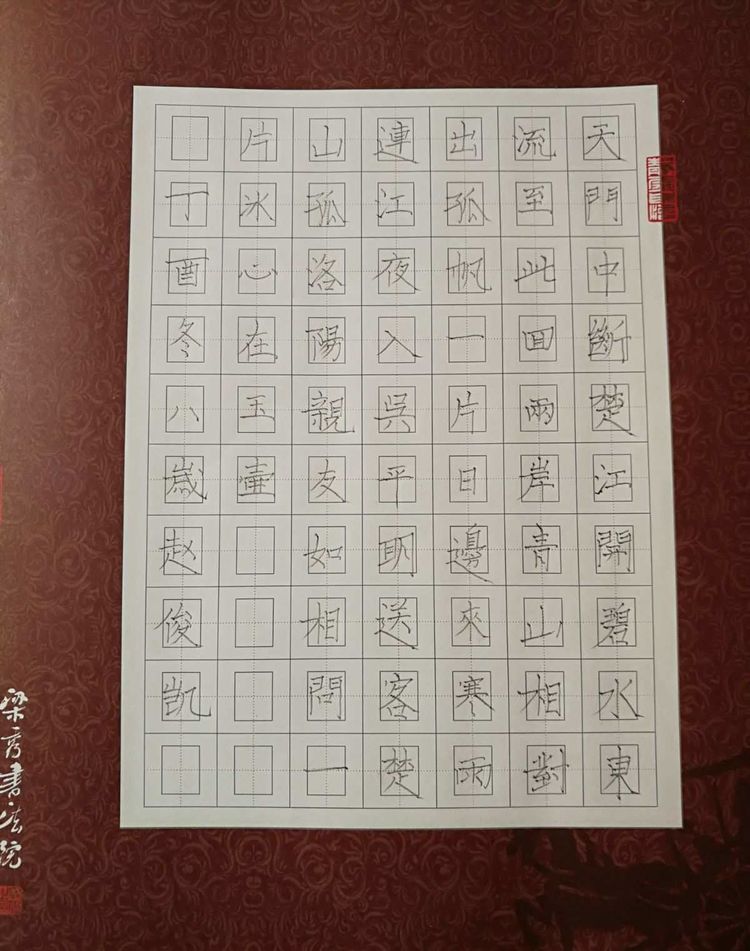 天門中斷楚江開碧水東
流至此回兩岸青山相對
出孤帆一片日邊來寒雨
連江夜入吳平明送客楚
山孤洛陽親友如相問一
片冰心在玉壺
丁酉冬八歲赵俊凱
梁秀書法院